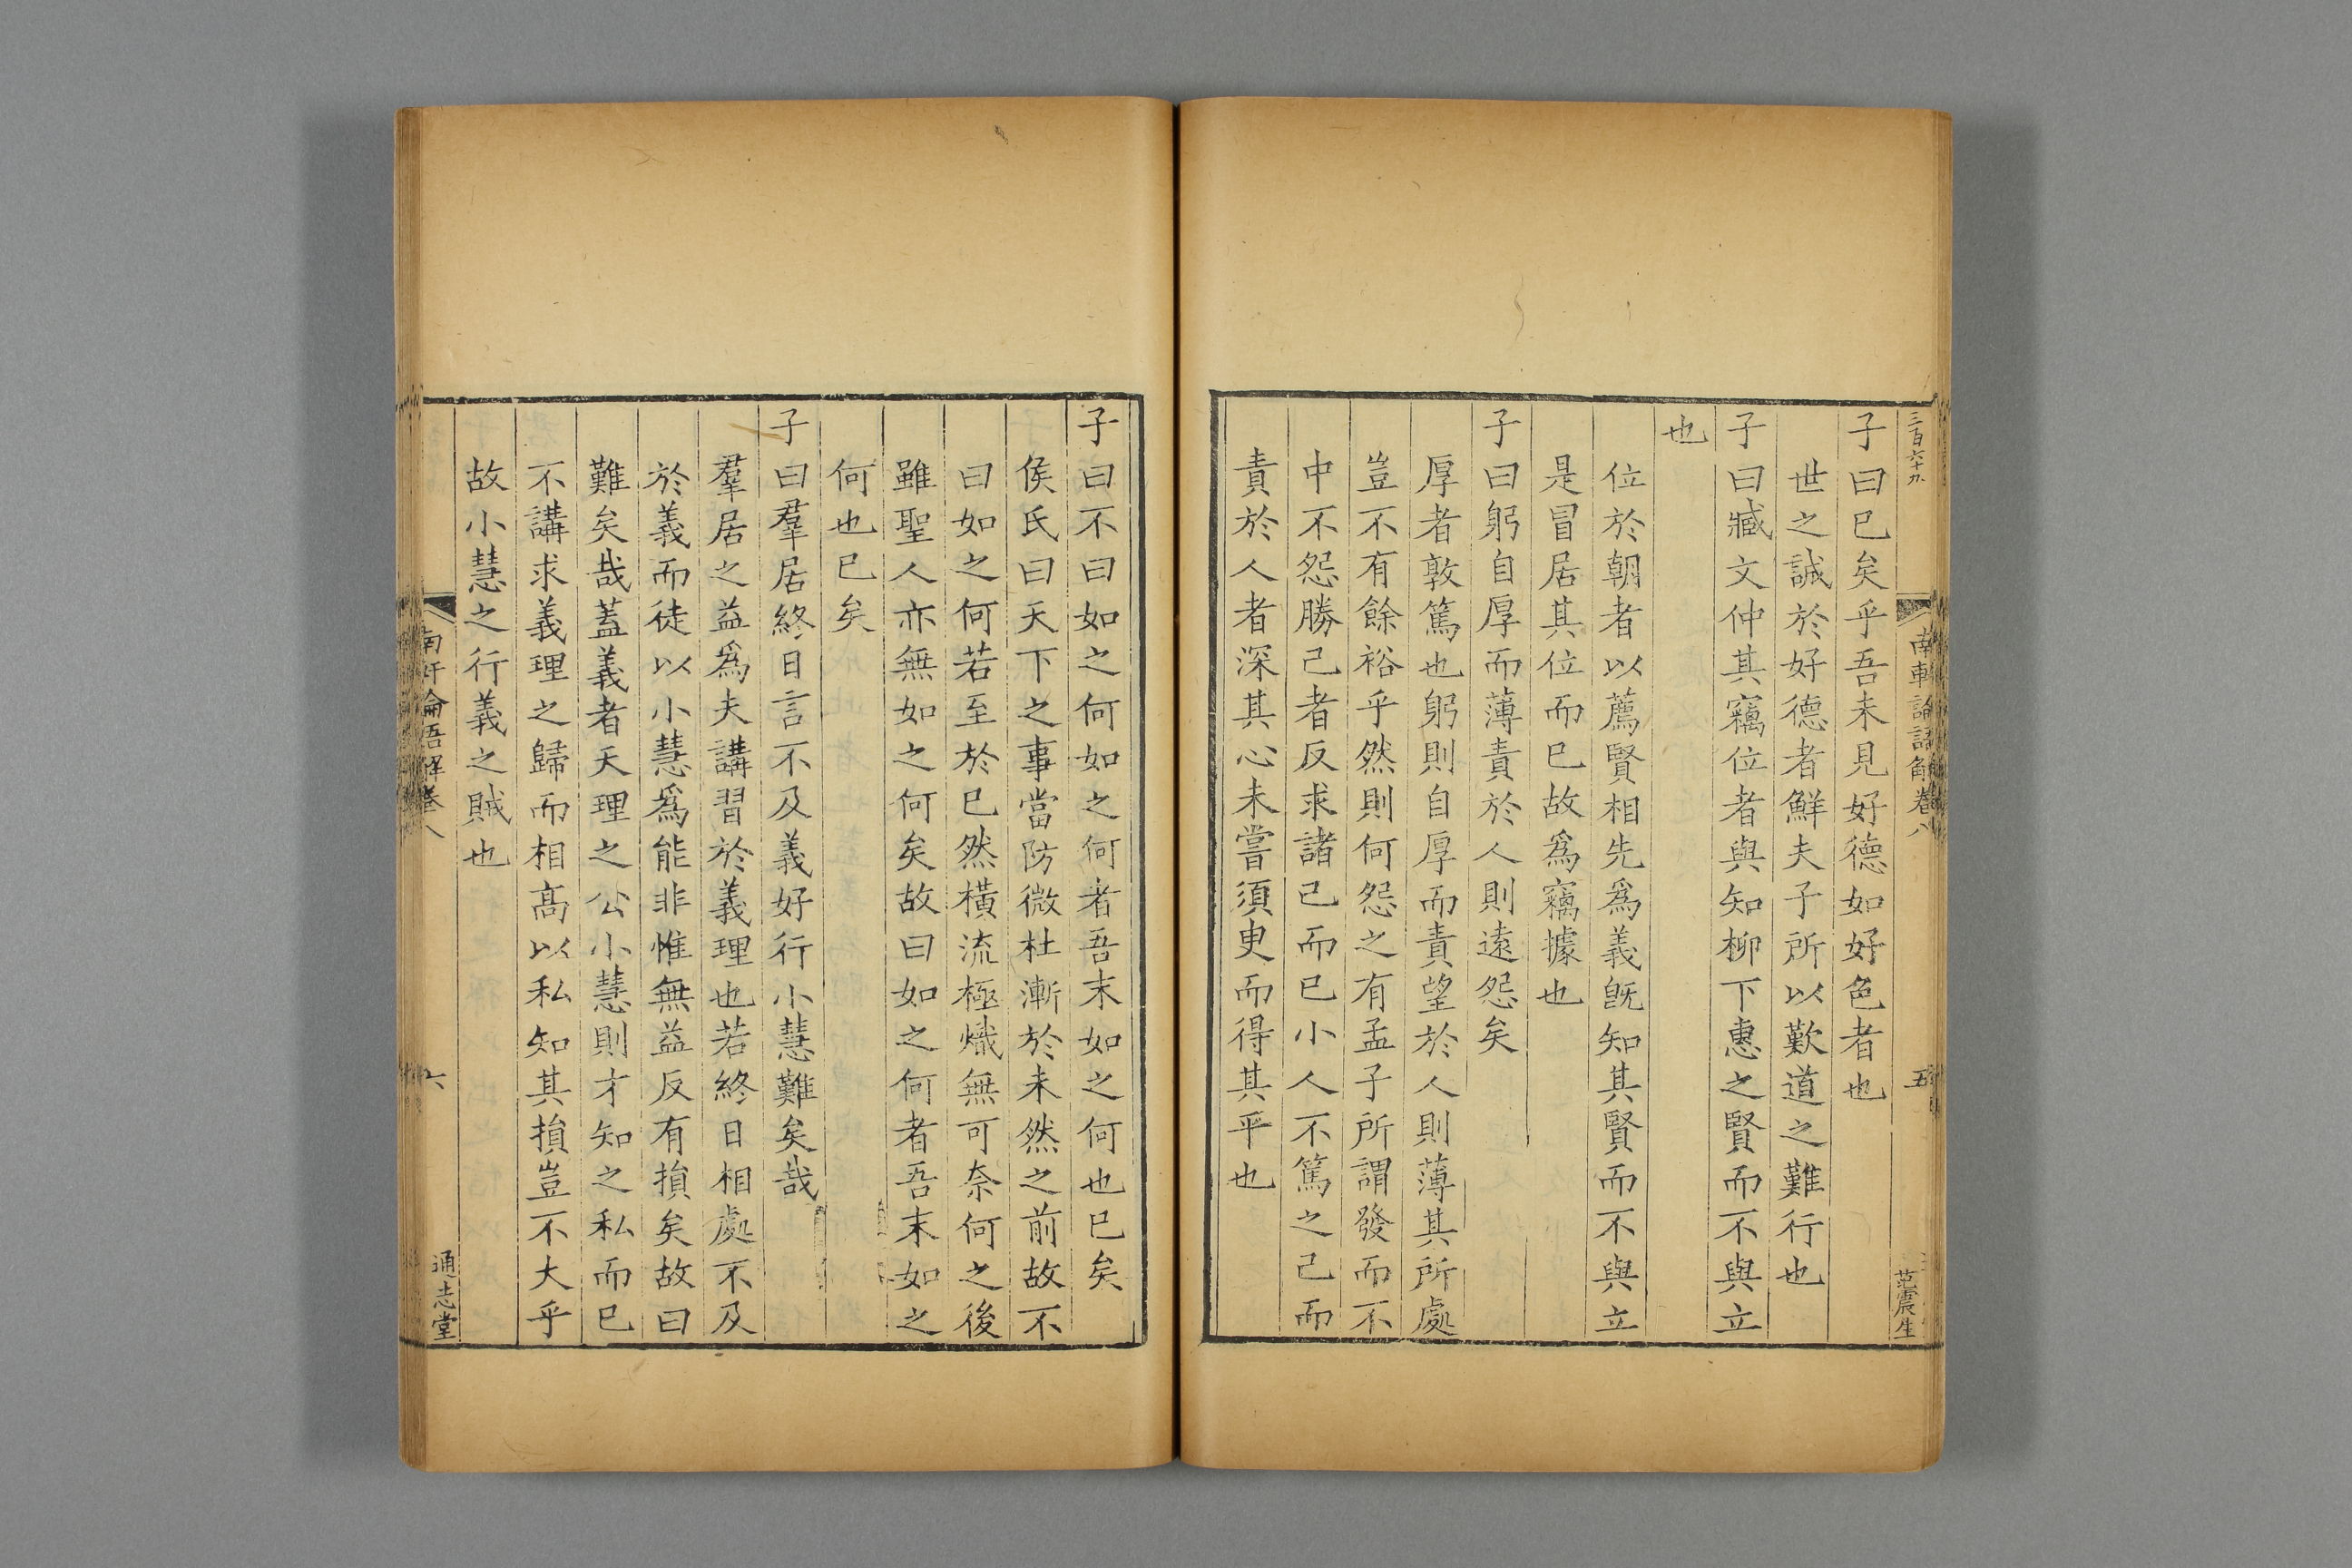 三百六十九
南軒論語解卷八
五
范震生
子曰已矣乎吾未見好德如好色者也
世之誠於好德者鮮夫子所以歎道之難行也
子曰臧文仲其竊位者與知柳下惠之賢而不與立
也
位於朝者以薦賢相先為義旣知其賢而不與立
是冒居其位而已故為竊據也
子曰躬自厚而薄責於人則遠怨矣
厚者敦篤也躬則自厚而責望於人則薄其所處
豈不有餘裕乎然則何怨之有孟子所謂發而不
中不怨勝己者反求諸己而已小人不篤之己而
責於人者深其心未嘗須臾而得其平也
子曰不曰如之何如之何者吾末如之何也已矣
侯氏曰天下之事當防微杜漸於未然之前故不
曰如之何若至於已然橫流極熾無可奈何之後
雖聖人亦無如之何矣故曰如之何者吾末如之
何也已矣
子曰羣居終日言不及義好行小慧難矣哉
羣居之益為夫講習於義理也若終日相處不及
於義而徒以小慧為能非惟無益反有損矣故曰
難矣哉蓋義者天理之公小慧則才知之私而已
不講求義理之歸而相高以私知其損豈不大乎
故小慧之行義之賊也
南軒論語解卷八
六
通志堂